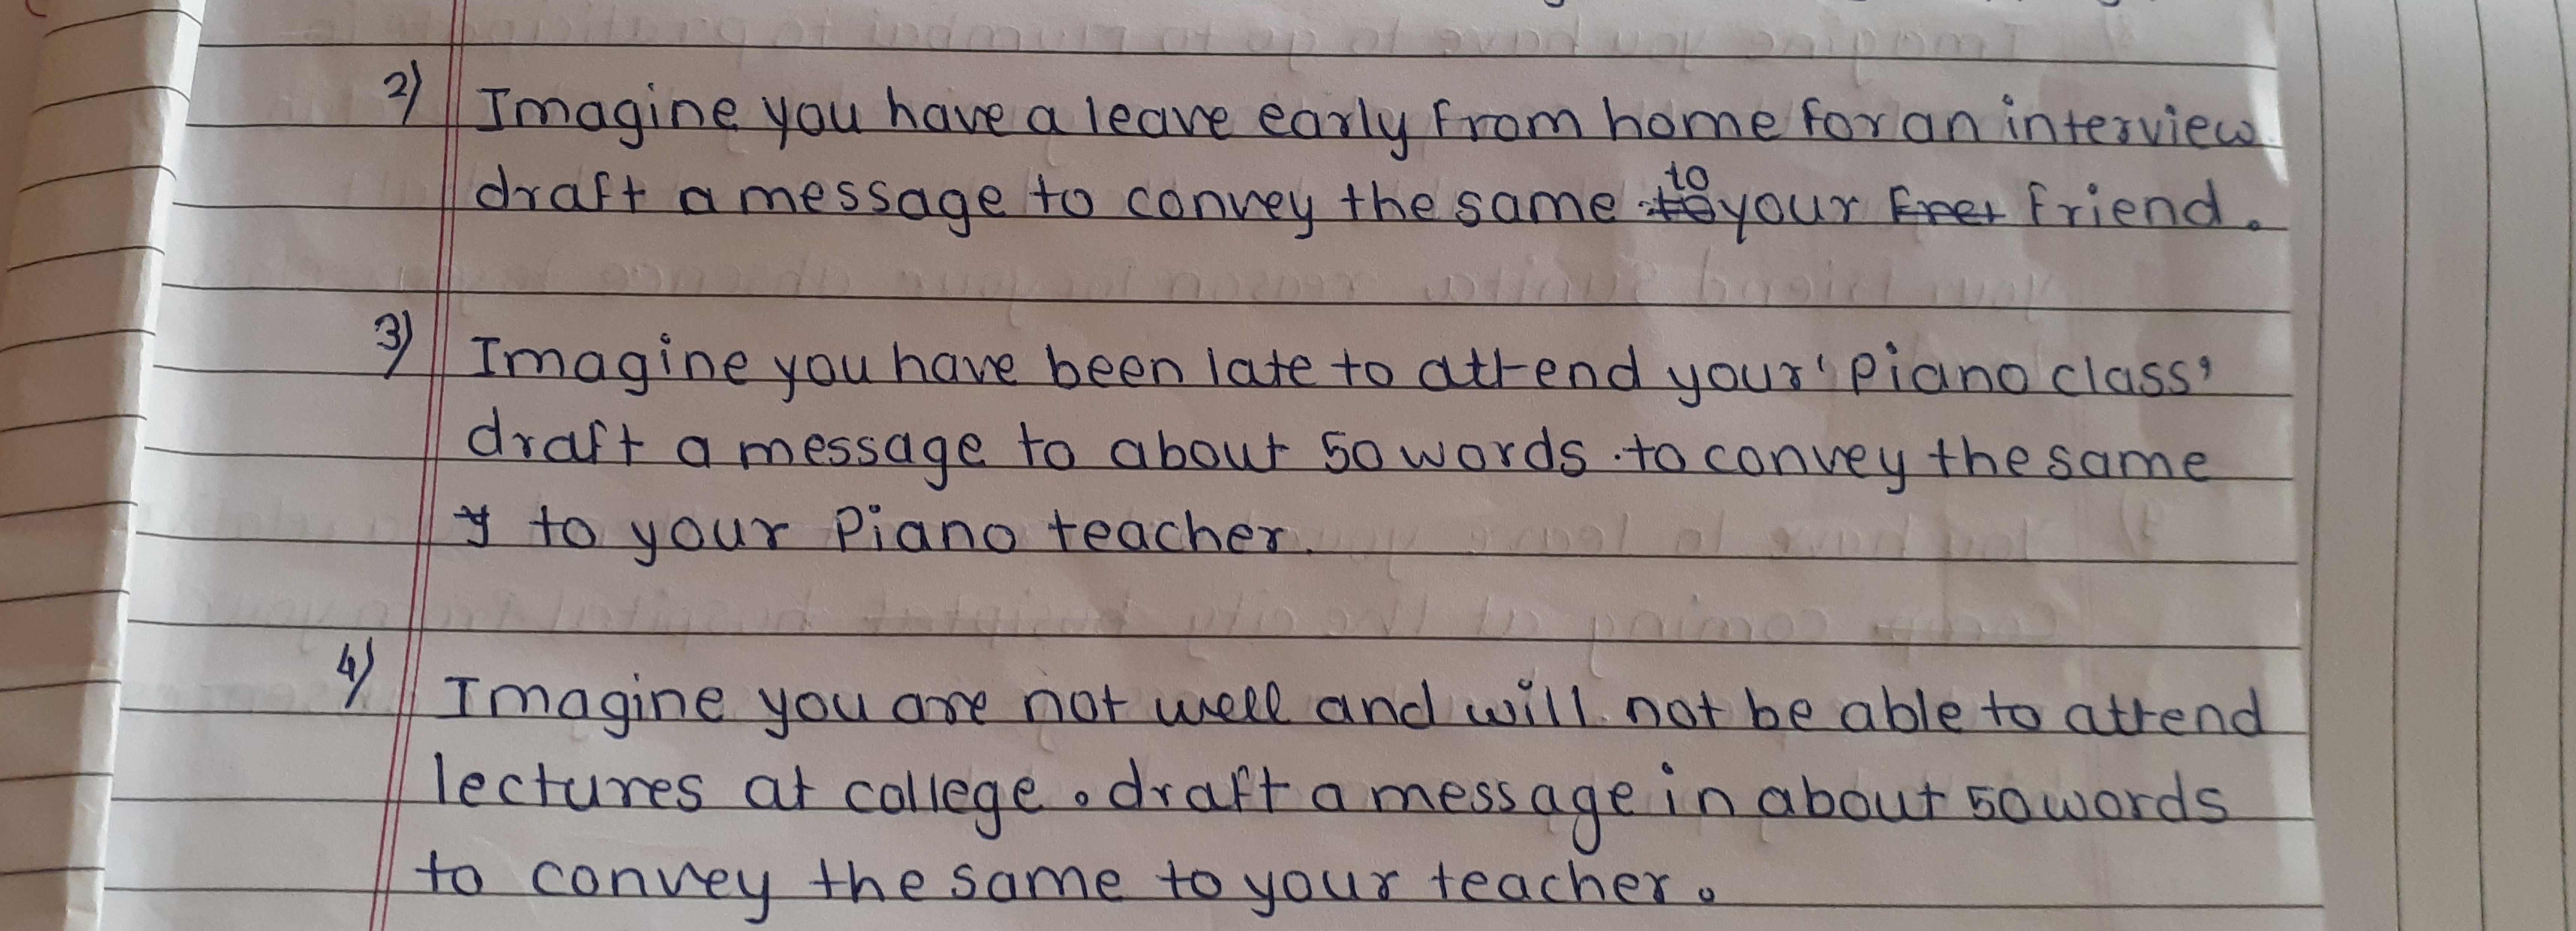 2) Imagine you have a leave early from home for an interview
draft a message to convey the same to your friend.
3) Imagine you have been late to attend your 'Piano class'
draft a message to about 50 words to convey the same
to your Piano teacher.
4) Imagine you are not well and will not be able to attend
lectures at college. draft a message in about 50 words
to convey the same to your teacher.